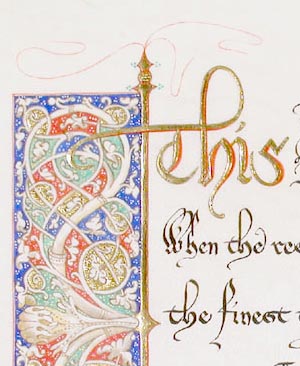 This
When the
the finest